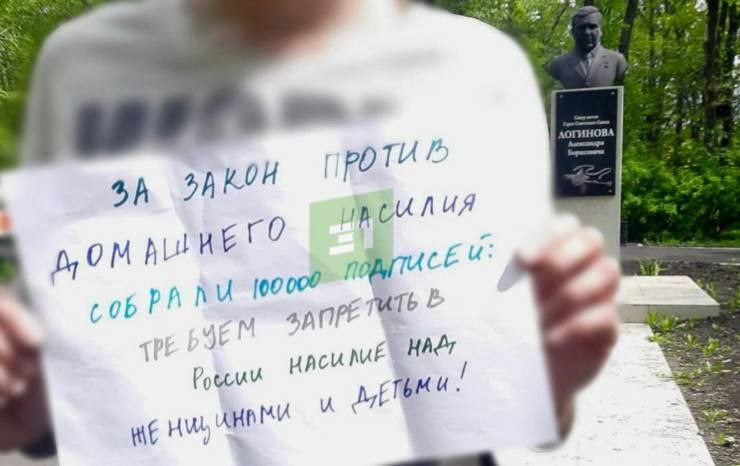 ЗА ЗАКОН ПРОТИВ
ДОМАШНЕГО НАСИЛИЯ
СОБРАЛИ 100000 ПОДПИСЕЙ:
ТРЕБУЕМ ЗАПРЕТИТЬ В
России НАСИЛИЕ НАД
ЖЕНЩИНАМИ И ДЕТЬМИ!
Героя Советского Союза
ЛОГИНОВА
Александра
Борисовича